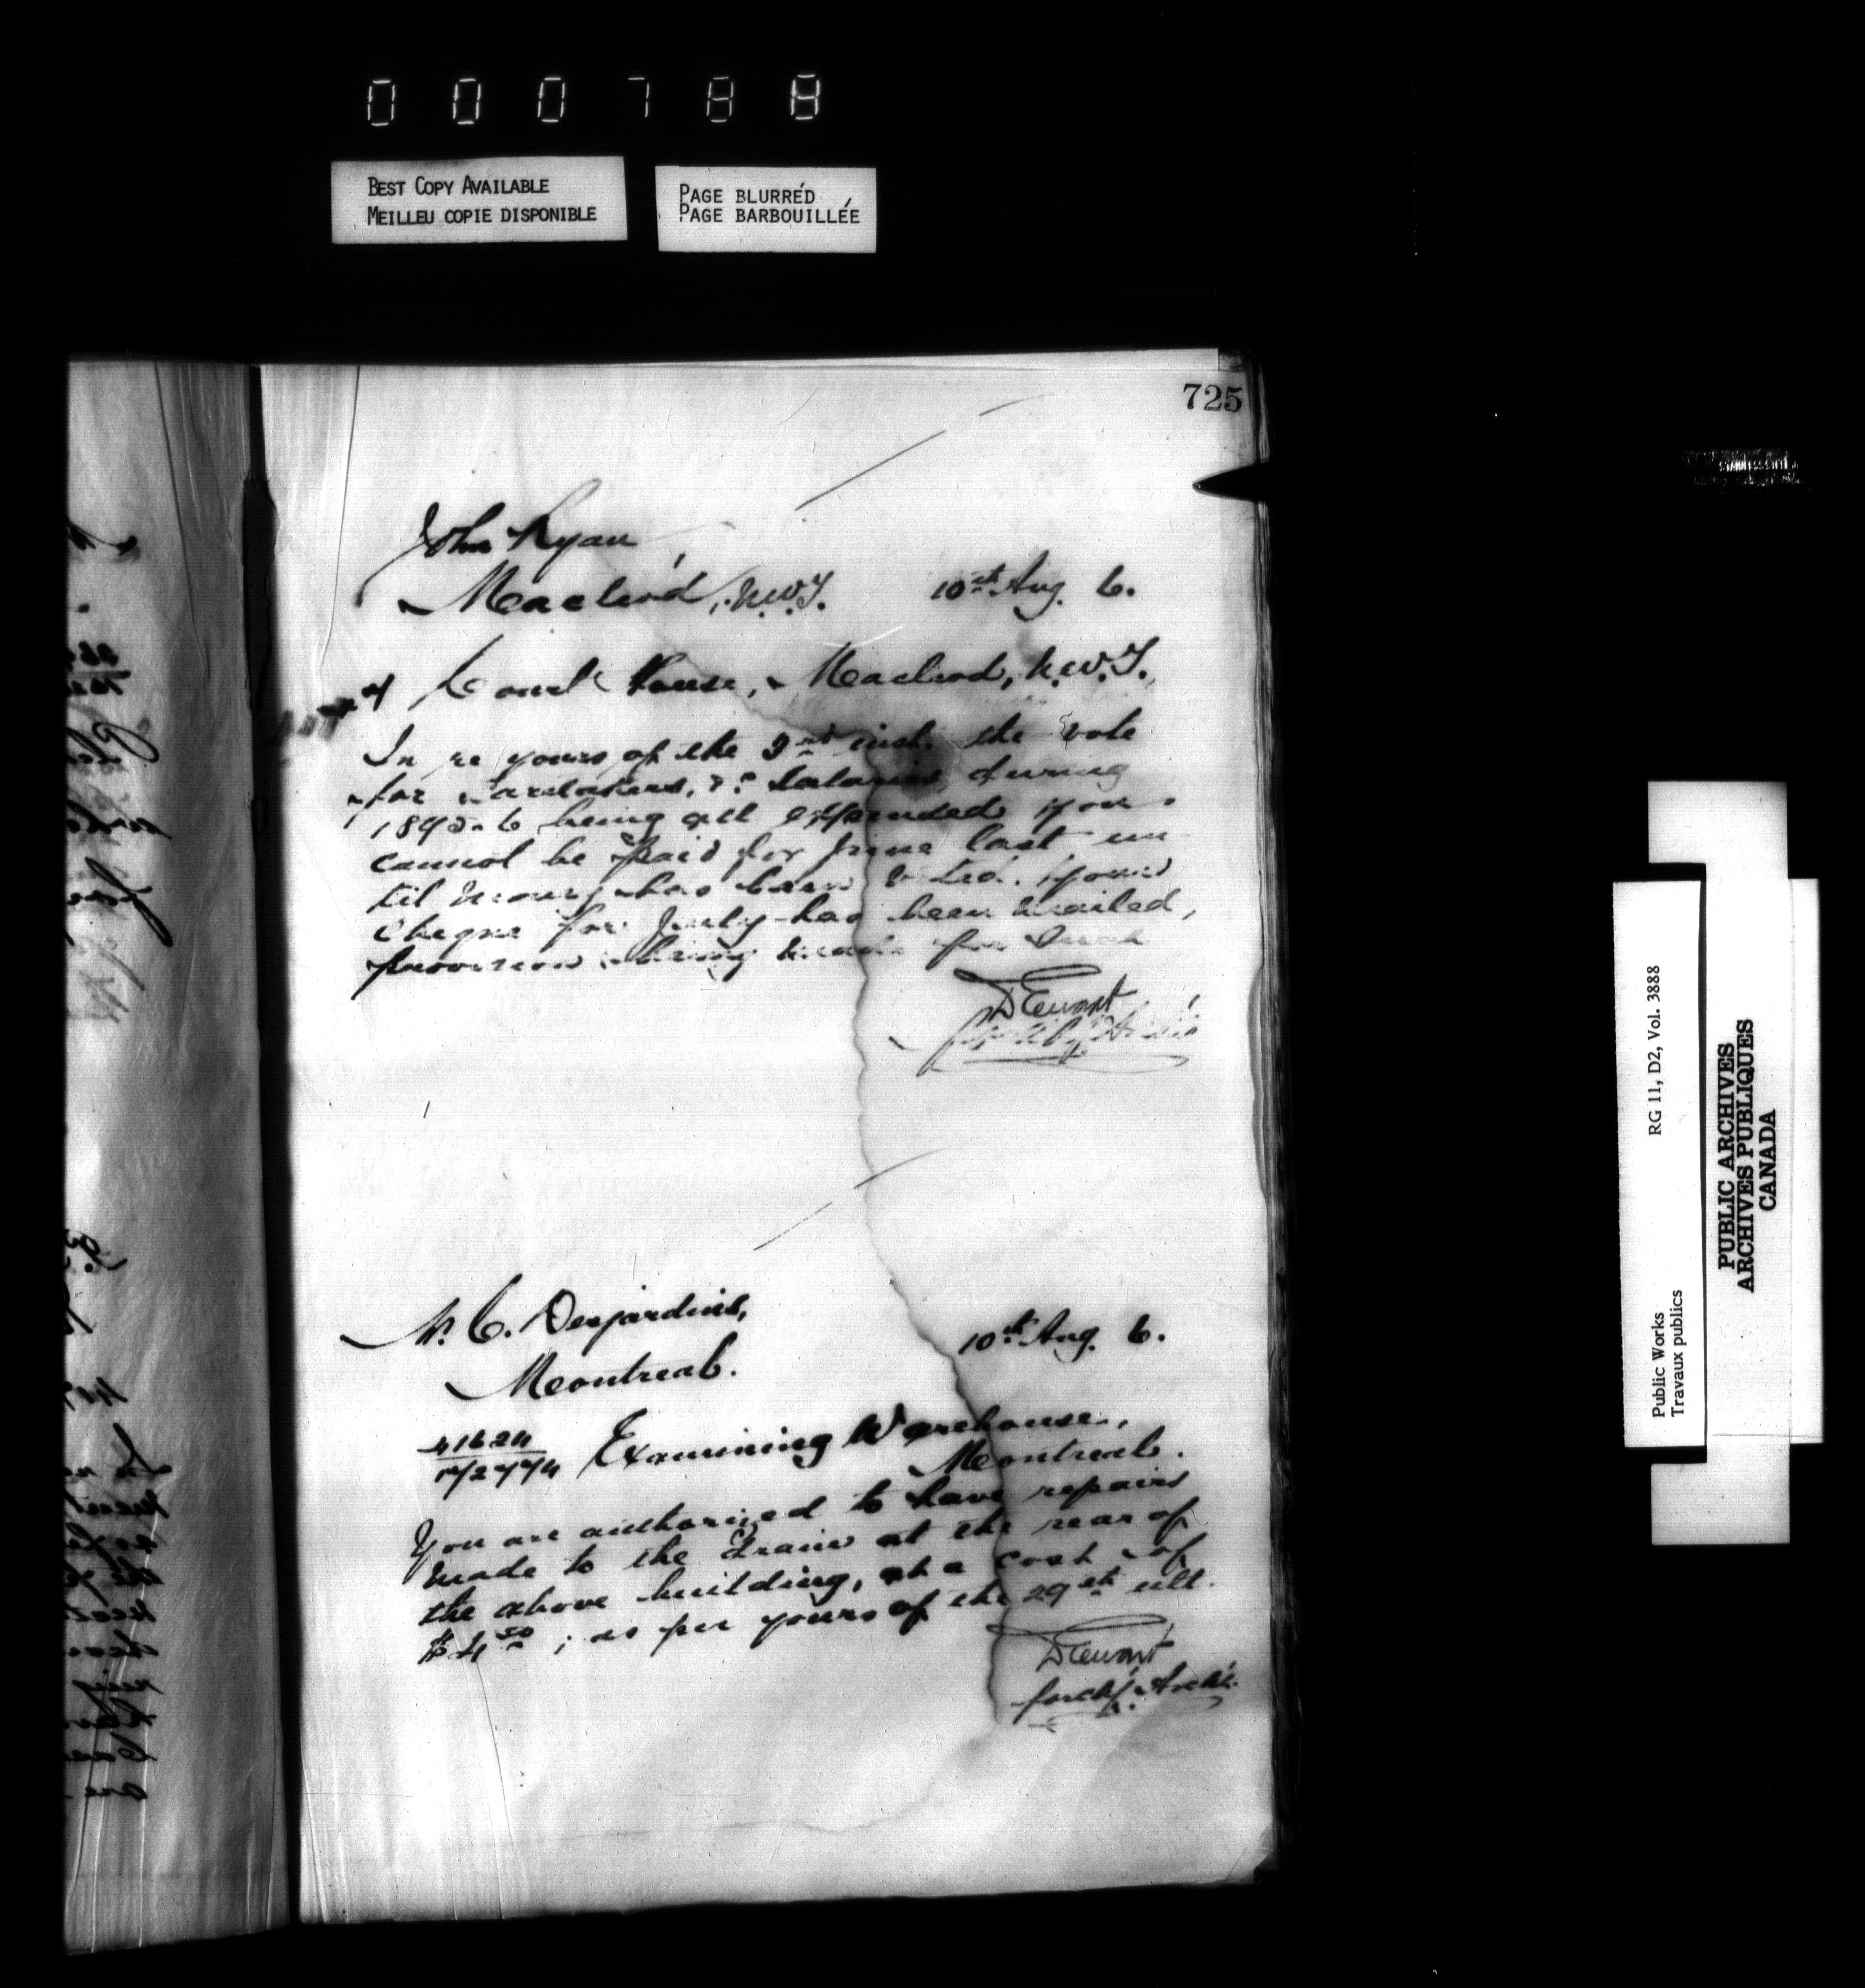 000788
BEST COPY AVAILABLE
MEILLEU COPIE DISPONIBLE
PAGE BLURRÉD
PAGE BARBOUILLÉE
725
John Ryan,
Macleod, N.W.T. 10th Aug. 6.
Court House, Macleod, N.W.T.
In re yours of the 3rd inst. the vote
for Caretakers, &c Salaries during
1895-6 being all expended you
cannot be paid for June last un-
til money has been voted. Your
cheque for July has been mailed,
provision being made for such
D Ewart
M. C. Desjardins, 10th Aug. 6.
Montreal.
Examining Warehouse,
Montreal.
You are authorized to have repairs
made to the drain at the rear of
the above building, at a cost of
$4.50; as per yours of the 29th ult.
D Ewart
for Chf. Archt.
Public Works RG 11, D2, Vol. 3888
Travaux publics
PUBLIC ARCHIVES
ARCHIVES PUBLIQUES
CANADA